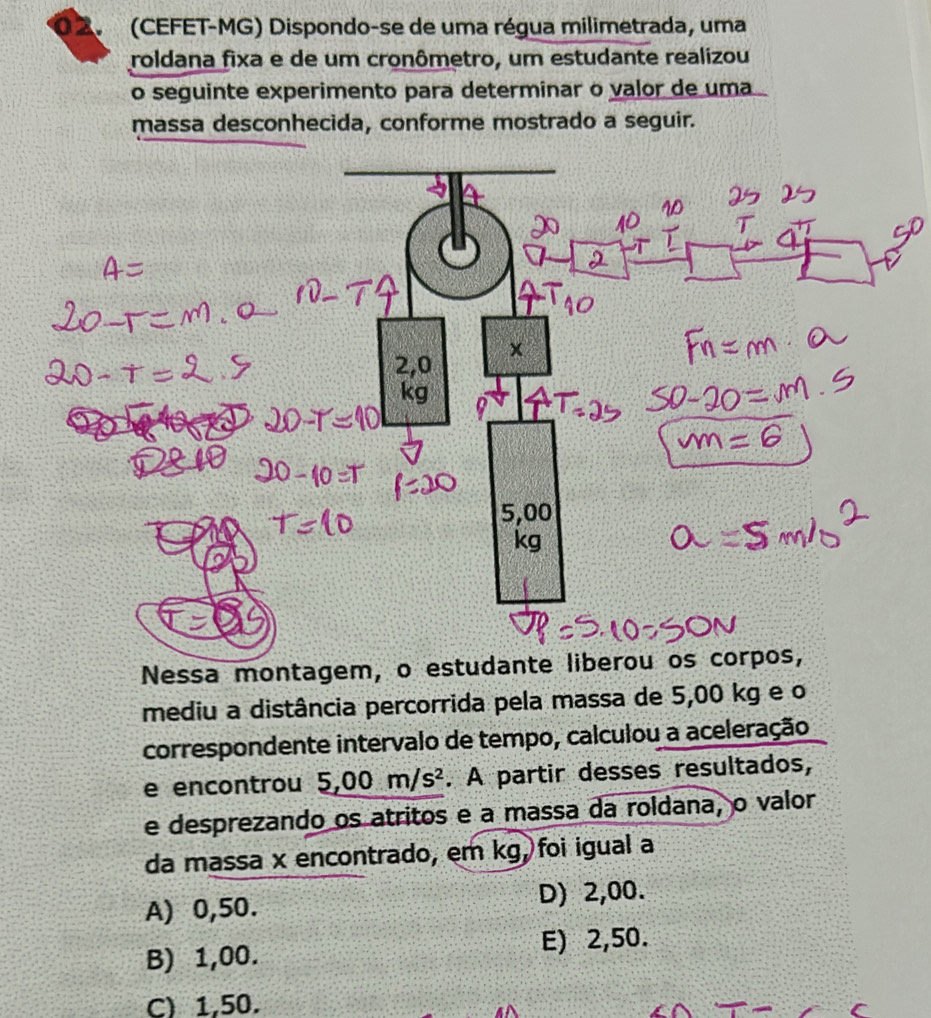 02. (CEFET-MG) Dispondo-se de uma régua milimetrada, uma
roldana fixa e de um cronômetro, um estudante realizou
o seguinte experimento para determinar o valor de uma
massa desconhecida, conforme mostrado a seguir.
A
20 10 10 25 25
2 T T T T 50
A=
20-T=m.a 10-T
T10
20-T=2.5
2,0
kg
x
Fn=m.a
20-T=10
T=25
50-20=m.5
m=6
20-10=T
P=20
T=10
5,00
kg
a=5m/s²
P=5.10=50N
Nessa montagem, o estudante liberou os corpos,
mediu a distância percorrida pela massa de 5,00 kg e o
correspondente intervalo de tempo, calculou a aceleração
e encontrou 5,00 m/s². A partir desses resultados,
e desprezando os atritos e a massa da roldana, o valor
da massa x encontrado, em kg, foi igual a
A) 0,50.
B) 1,00.
C) 1,50.
D) 2,00.
E) 2,50.